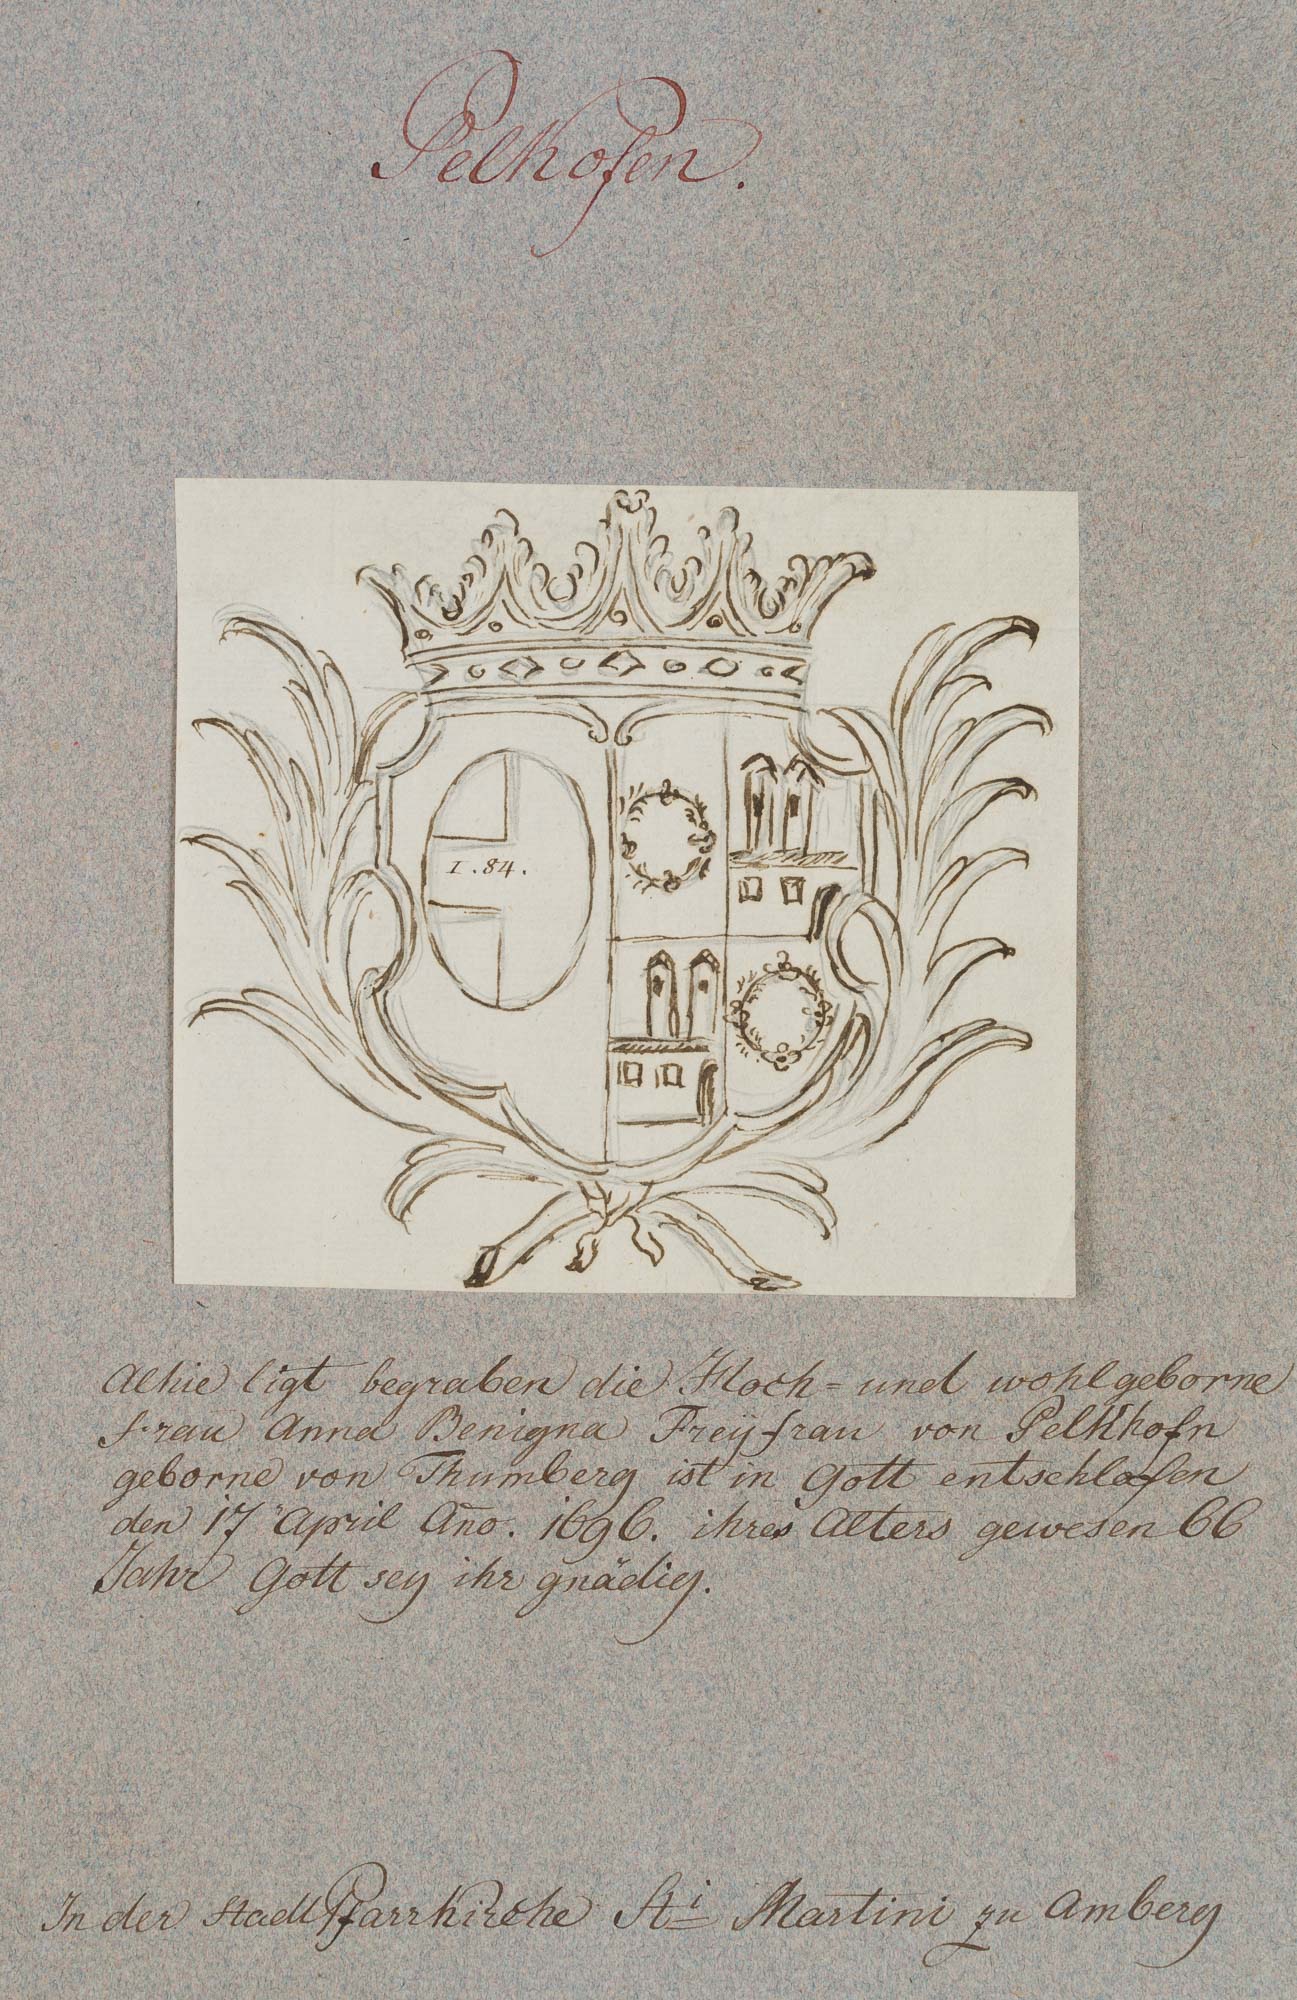 Pelkofen.
I. 84.
Alhie ligt begraben die Hoch= und wohlgeborne
frau Anna Benigna Freÿfrau von Pelkhofn
geborne von Thumberg ist in Gott entschlafen
den 17 April Año. 1696. ihres Alters gewesen 66
Jahr Gott sey ihr gnädig.
In der Stadt Pfarrkirche Sti Martini zu Amberg